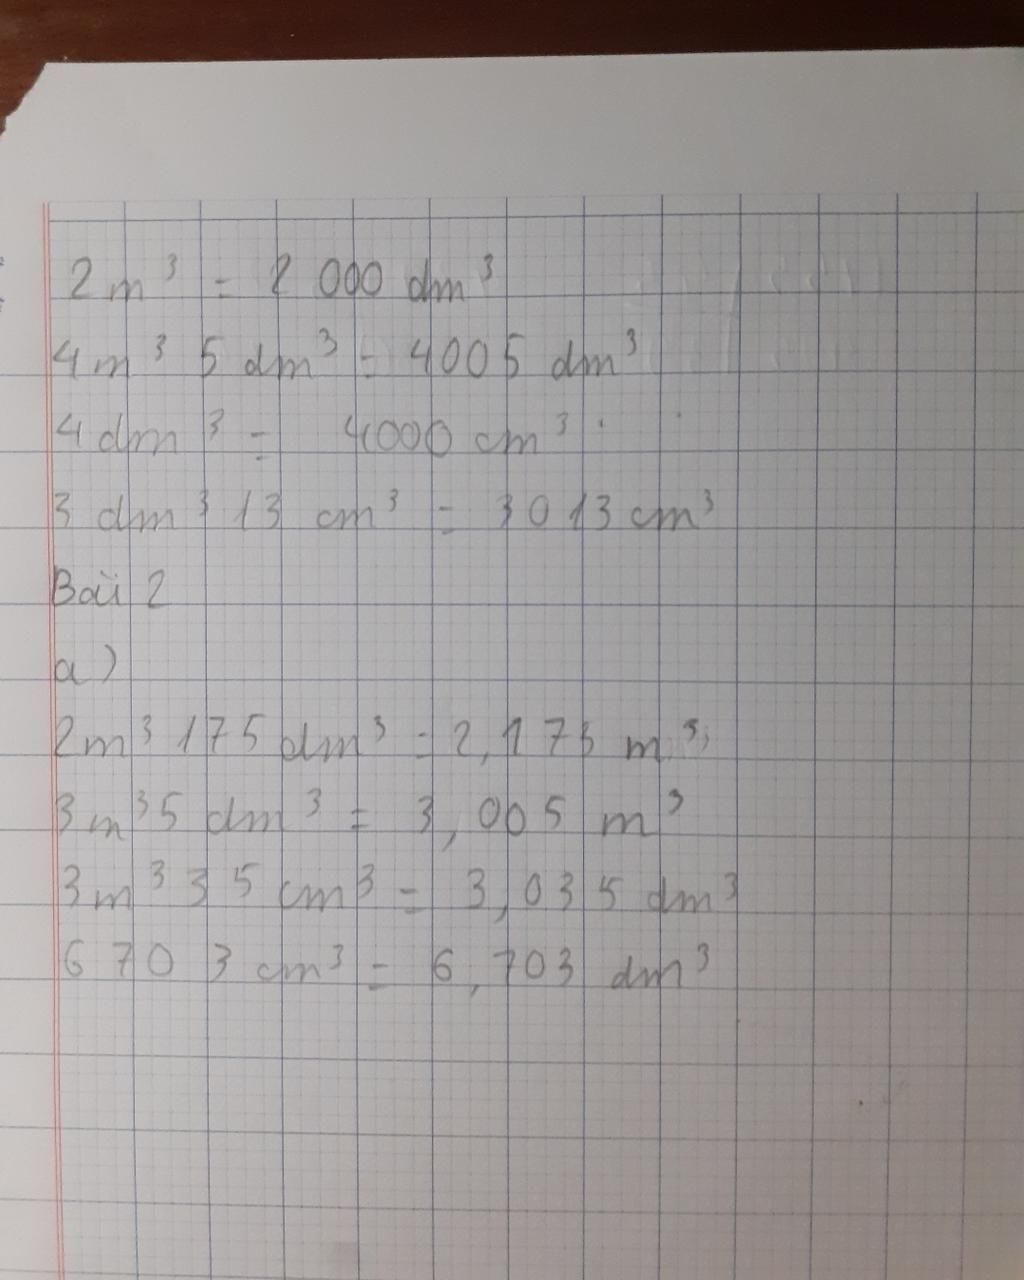 2m³ = 2 000 dm³
4m³ 5 dm³ = 4005 dm³
4 dm³ = 4000 cm³
3 dm³ 13 cm³ = 3013 cm³
Bài 2
a)
2m³ 175 dm³ = 2,175 m³;
3m³ 5 dm³ = 3,005 m³
3m³ 35 cm³ = 3,035 dm³
6703 cm³ = 6,703 dm³